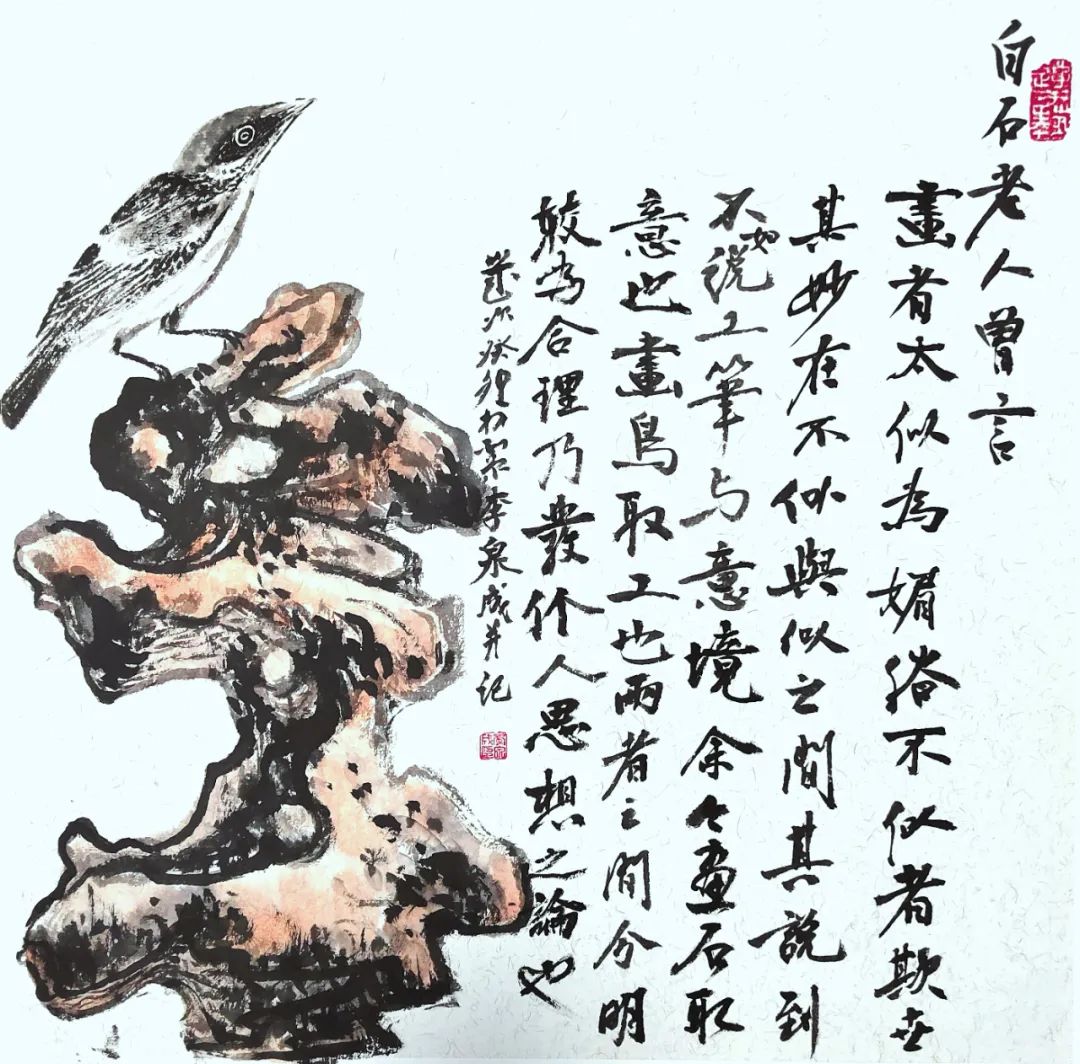 白石老人曾言
畫者太似為媚俗不似者欺世
其妙在不似與似之間其說到
不如說工筆与意境余今畫石取
意也畫鳥取工也兩者之間分明
較为合理乃發个人思想之論也
歲次癸 李泉成并记